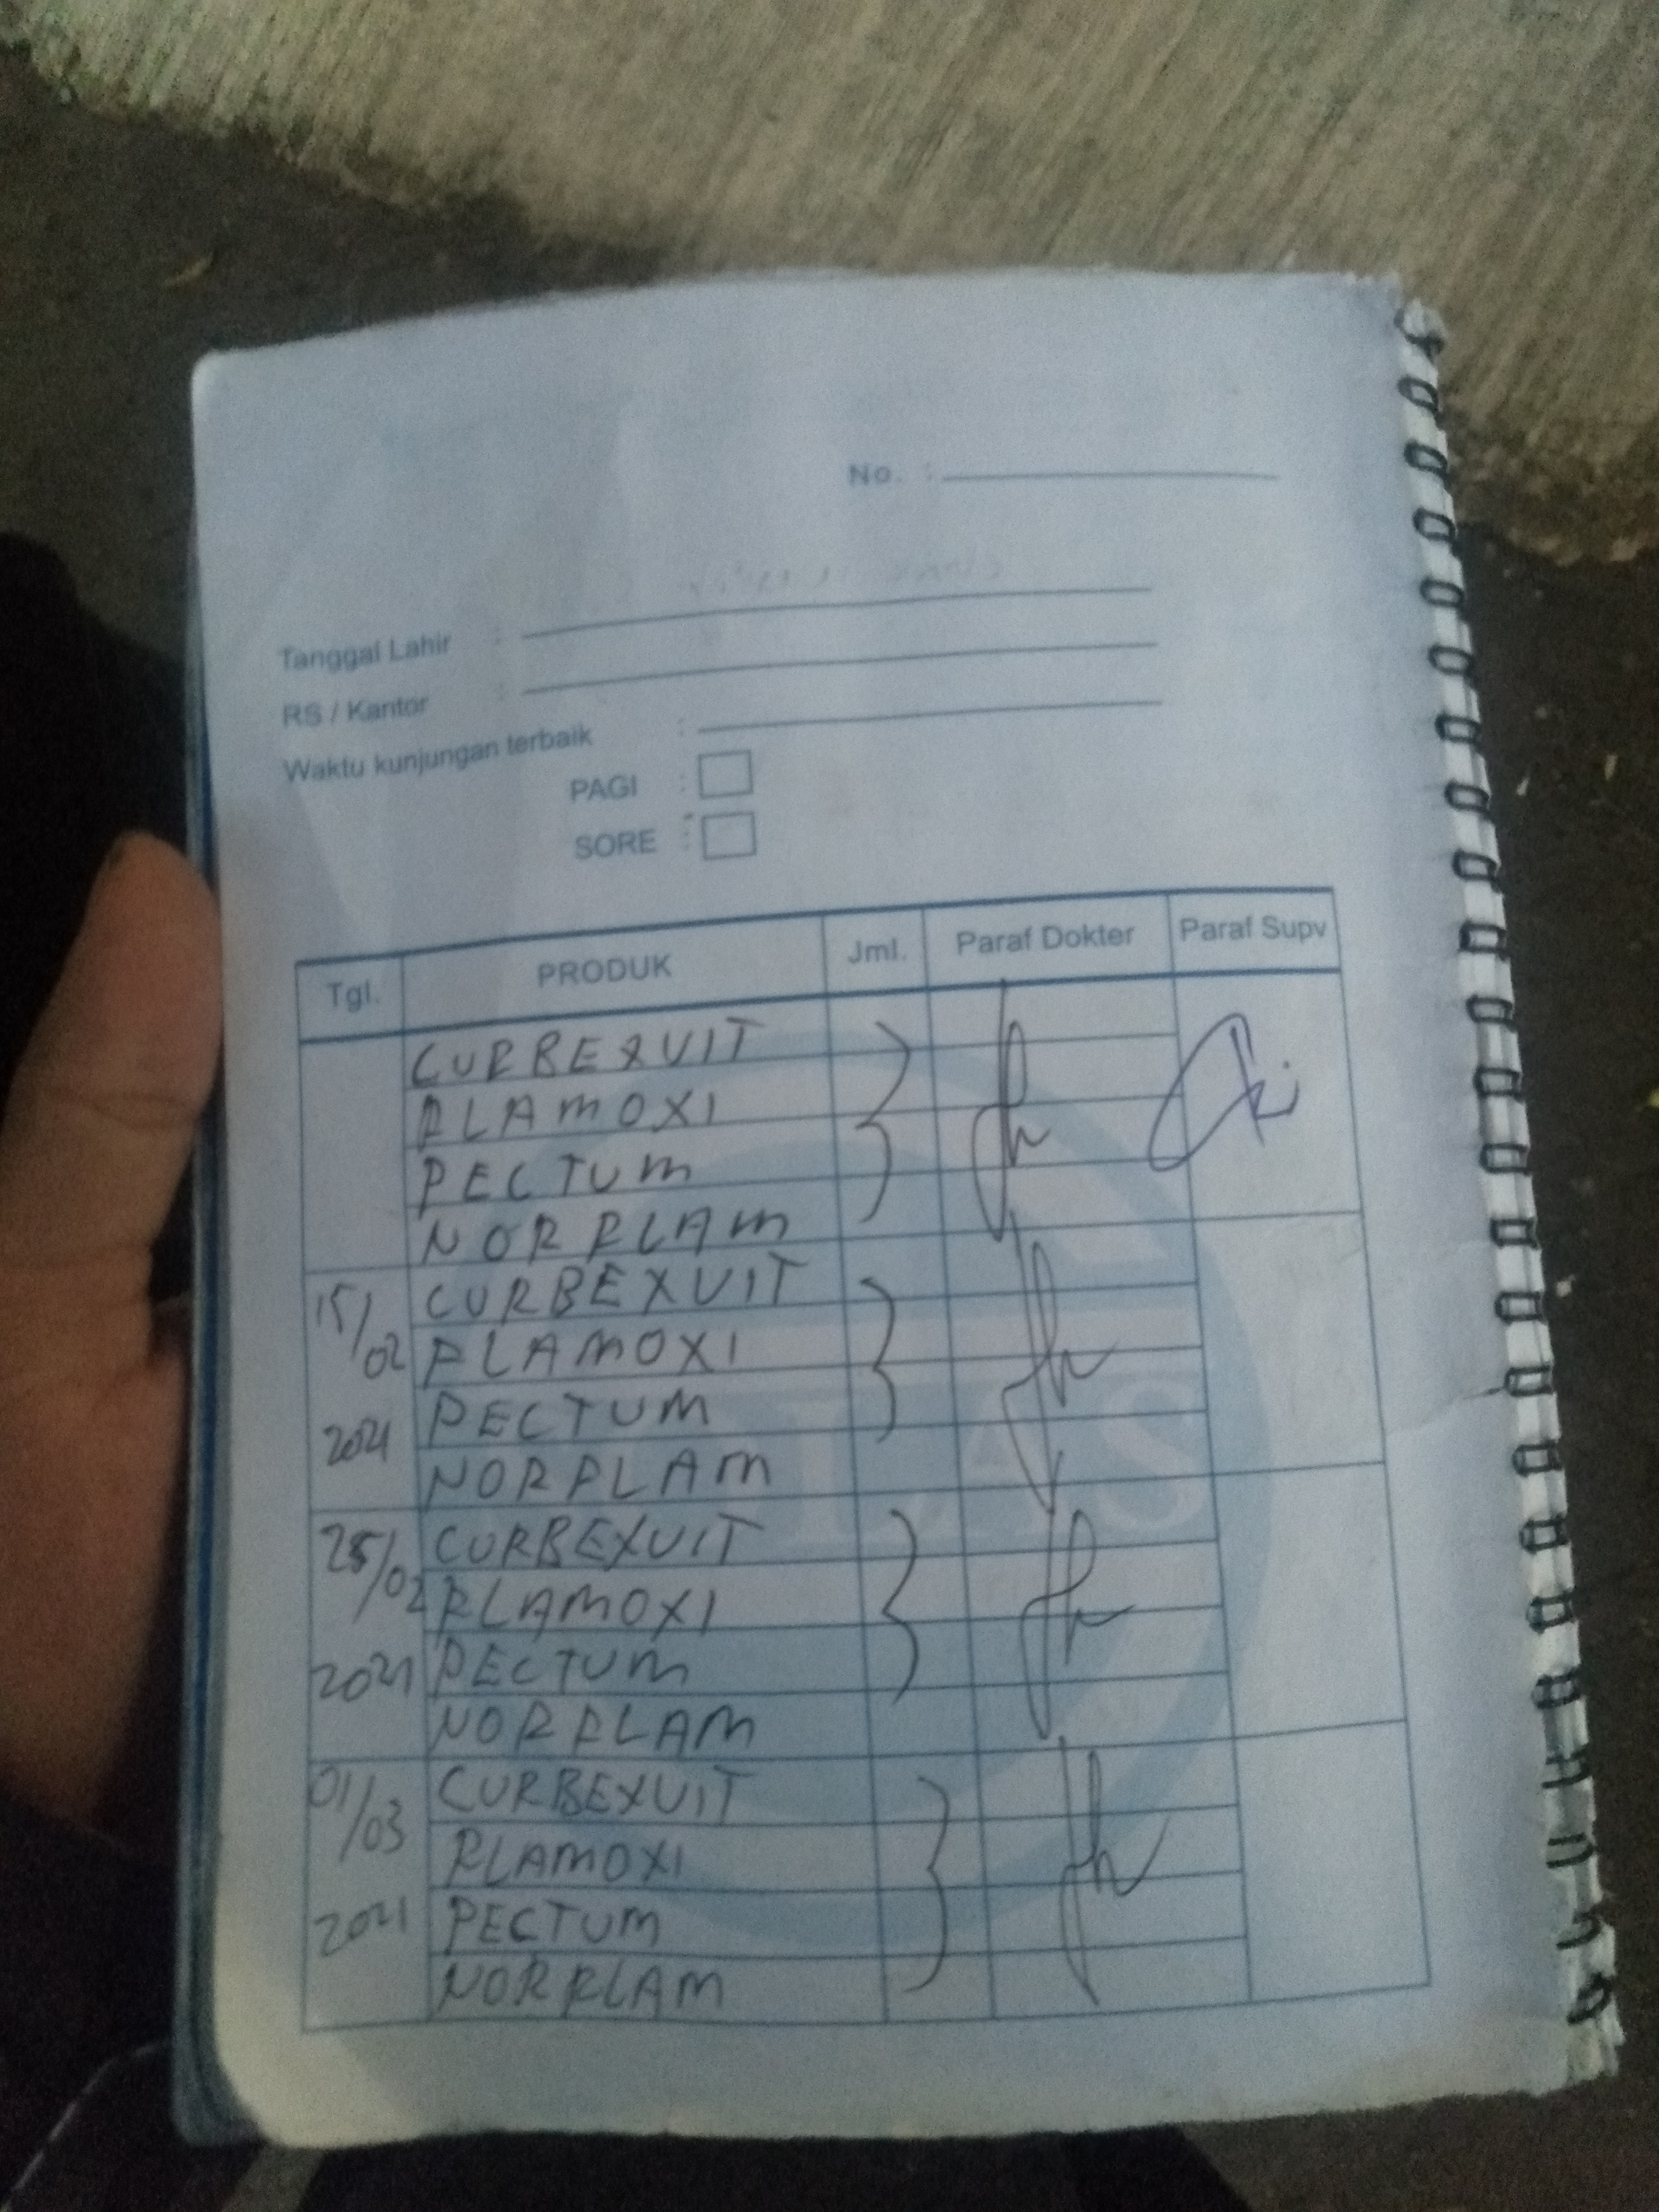 No. :
Tanggal Lahir :
RS / Kantor :
Waktu kunjungan terbaik :
PAGI :
SORE :
Tgl. PRODUK Jml. Paraf Dokter Paraf Supv
CURBEXVIT
PLAMOXI
PECTUM
NORPLAM
15/02 CURBEXVIT
PLAMOXI
2021 PECTUM
NORPLAM
25/02 CURBEXVIT
PLAMOXI
2021 PECTUM
NORPLAM
01/03 CURBEXVIT
PLAMOXI
2021 PECTUM
NORPLAM